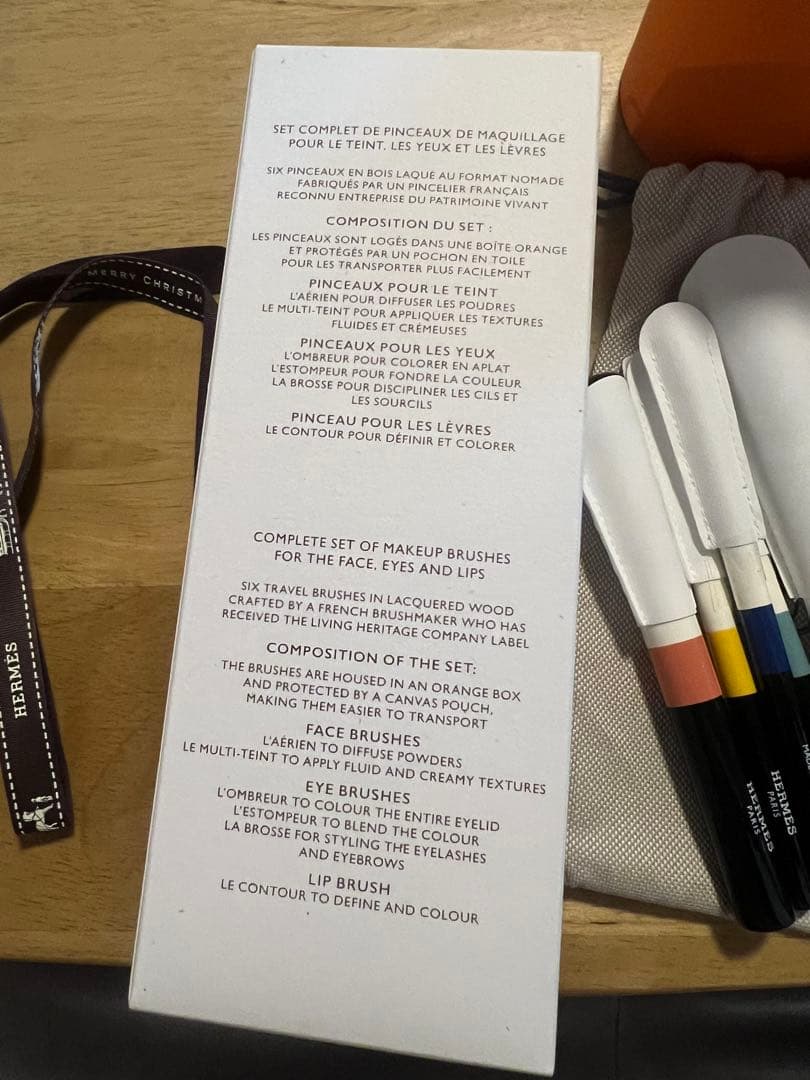 SET COMPLET DE PINCEAUX DE MAQUILLAGE
POUR LE TEINT, LES YEUX ET LES LÈVRES
SIX PINCEAUX EN BOIS LAQUÉ AU FORMAT NOMADE
FABRIQUÉS PAR UN PINCELIER FRANÇAIS
RECONNU ENTREPRISE DU PATRIMOINE VIVANT
COMPOSITION DU SET :
LES PINCEAUX SONT LOGÉS DANS UNE BOÎTE ORANGE
ET PROTÉGÉS PAR UN POCHON EN TOILE
POUR LES TRANSPORTER PLUS FACILEMENT
PINCEAUX POUR LE TEINT
L'AÉRIEN POUR DIFFUSER LES POUDRES
LE MULTI-TEINT POUR APPLIQUER LES TEXTURES
FLUIDES ET CRÉMEUSES
PINCEAUX POUR LES YEUX
L'OMBREUR POUR COLORER EN APLAT
L'ESTOMPEUR POUR FONDRE LA COULEUR
LA BROSSE POUR DISCIPLINER LES CILS ET
LES SOURCILS
PINCEAU POUR LES LÈVRES
LE CONTOUR POUR DÉFINIR ET COLORER
COMPLETE SET OF MAKEUP BRUSHES
FOR THE FACE, EYES AND LIPS
SIX TRAVEL BRUSHES IN LACQUERED WOOD
CRAFTED BY A FRENCH BRUSHMAKER WHO HAS
RECEIVED THE LIVING HERITAGE COMPANY LABEL
COMPOSITION OF THE SET:
THE BRUSHES ARE HOUSED IN AN ORANGE BOX
AND PROTECTED BY A CANVAS POUCH,
MAKING THEM EASIER TO TRANSPORT
FACE BRUSHES
L'AÉRIEN TO DIFFUSE POWDERS
LE MULTI-TEINT TO APPLY FLUID AND CREAMY TEXTURES
EYE BRUSHES
L'OMBREUR TO COLOUR THE ENTIRE EYELID
L'ESTOMPEUR TO BLEND THE COLOUR
LA BROSSE FOR STYLING THE EYELASHES
AND EYEBROWS
LIP BRUSH
LE CONTOUR TO DEFINE AND COLOUR
MERRY CHRISTM
HERMÈS
HERMÈS
PARIS
HERMÈS
PARIS